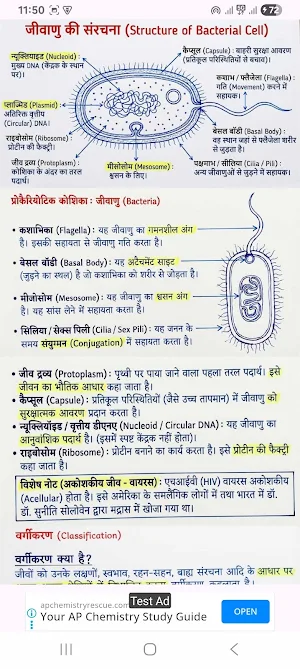 11:50
72
जीवाणु की संरचना (Structure of Bacterial Cell)
न्यूक्लियाइड (Nucleoid):
मुख्य DNA (केंद्रक के स्थान पर)।
प्लाज्मिड (Plasmid)
अतिरिक्त वृत्तीय
(Circular) DNA।
राइबोसोम (Ribosome):
प्रोटीन की फैक्ट्री।
जीव द्रव्य (Protoplasm):
कोशिका के अंदर का तरल
पदार्थ।
मीसोसोम (Mesosome):
श्वसन के लिए।
कैप्सूल (Capsule): बाहरी सुरक्षा आवरण
(प्रतिकूल परिस्थितियों से बचाव)।
कषाभ / फ्लैजेला (Flagella):
गति (Movement) करने में
सहायक।
बेसल बॉडी (Basal Body):
वह स्थान जहां से फ्लैजेला शरीर
से जुड़ता है।
पक्ष्माभ / सीलिया (Cilia / Pili):
अन्य जीवाणुओं से जुड़ने में सहायक।
प्रोकैरियोटिक कोशिका: जीवाणु (Bacteria)
• कशाभिका (Flagella): यह जीवाणु का गमनशील अंग
है। इसकी सहायता से जीवाणु गति करता है।
• बेसल बॉडी (Basal Body): यह अटैचमेंट साइट
(जुड़ने का स्थल) है जो कशाभिका को शरीर से जोड़ता है।
• मीजोसोम (Mesosome): यह जीवाणु का श्वसन अंग
है। यह सांस लेने में सहायता करता है।
• सिलिया / सेक्स पिली (Cilia / Sex Pili): यह जनन के
समय संयुग्मन (Conjugation) में सहायता करता है।
• जीव द्रव्य (Protoplasm): पृथ्वी पर पाया जाने वाला पहला तरल पदार्थ। इसे
जीवन का भौतिक आधार कहा जाता है।
• कैप्सूल (Capsule): प्रतिकूल परिस्थितियों (जैसे उच्च तापमान) में जीवाणु को
सुरक्षात्मक आवरण प्रदान करता है।
• न्यूक्लियॉइड / वृत्तीय डीएनए (Nucleoid / Circular DNA): यह जीवाणु का
आनुवांशिक पदार्थ है। (इसमें स्पष्ट केंद्रक नहीं होता)।
• राइबोसोम (Ribosome): प्रोटीन बनाने का कार्य करता है। इसे प्रोटीन की फैक्ट्री
कहा जाता है।
विशेष नोट (अकोशकीय जीव - वायरस): एचआईवी (HIV) वायरस अकोशकीय
(Acellular) होता है। इसे अमेरिका के समलैंगिक लोगों में तथा भारत में डॉ.
डॉ. सुनीति सोलोवेन द्वारा मद्रास में खोजा गया था।
वर्गीकरण (Classification)
वर्गीकरण क्या है?
जीवों को उनके लक्षणों, स्वभाव, रहन-सहन, बाह्य संरचना आदि के आधार पर
apchemistryrescue.com
Test Ad
Your AP Chemistry Study Guide
OPEN